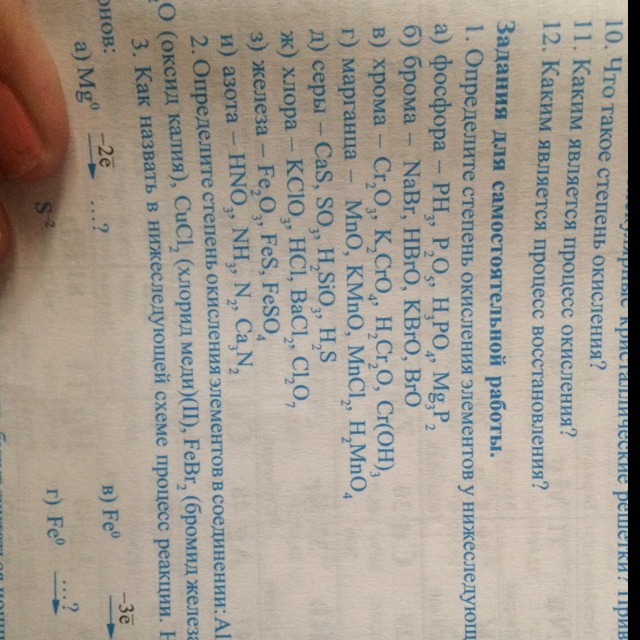 10. Что такое степень окисления?
11. Каким является процесс окисления?
12. Каким является процесс восстановления?
Задания для самостоятельной работы.
1. Определите степень окисления элементов у нижеследующ
а) фосфора – PH₃, P₂O₃, H₃PO₄, Mg₃P₂
б) брома – NaBr, HBrO, KBrO, BrO
в) хрома – Cr₂O₃, K₂CrO₄, H₂Cr₂O, Cr(OH)₃
г) марганца – MnO, KMnO, MnCl₂, H₂MnO₄
д) серы – CaS, SO₃, H₂SiO₃, H₂S
ж) хлора – KClO₃, HCl, BaCl₂, Cl₂O₇
з) железа – Fe₂O₃, FeS, FeSO₄
и) азота – HNO₃, NH₃, N₂, Ca₃N₂
2. Определите степень окисления элементов в соединении. Al
O (оксид калия), CuCl₂ (хлорид меди)(II), FeBr₂ (бромид желез
3. Как назвать в нижеследующей схеме процесс реакции.
а) Mg⁰ –2ē → ...? в) Fe⁰ –3ē →
S⁻² г) Fe⁰ ...? →